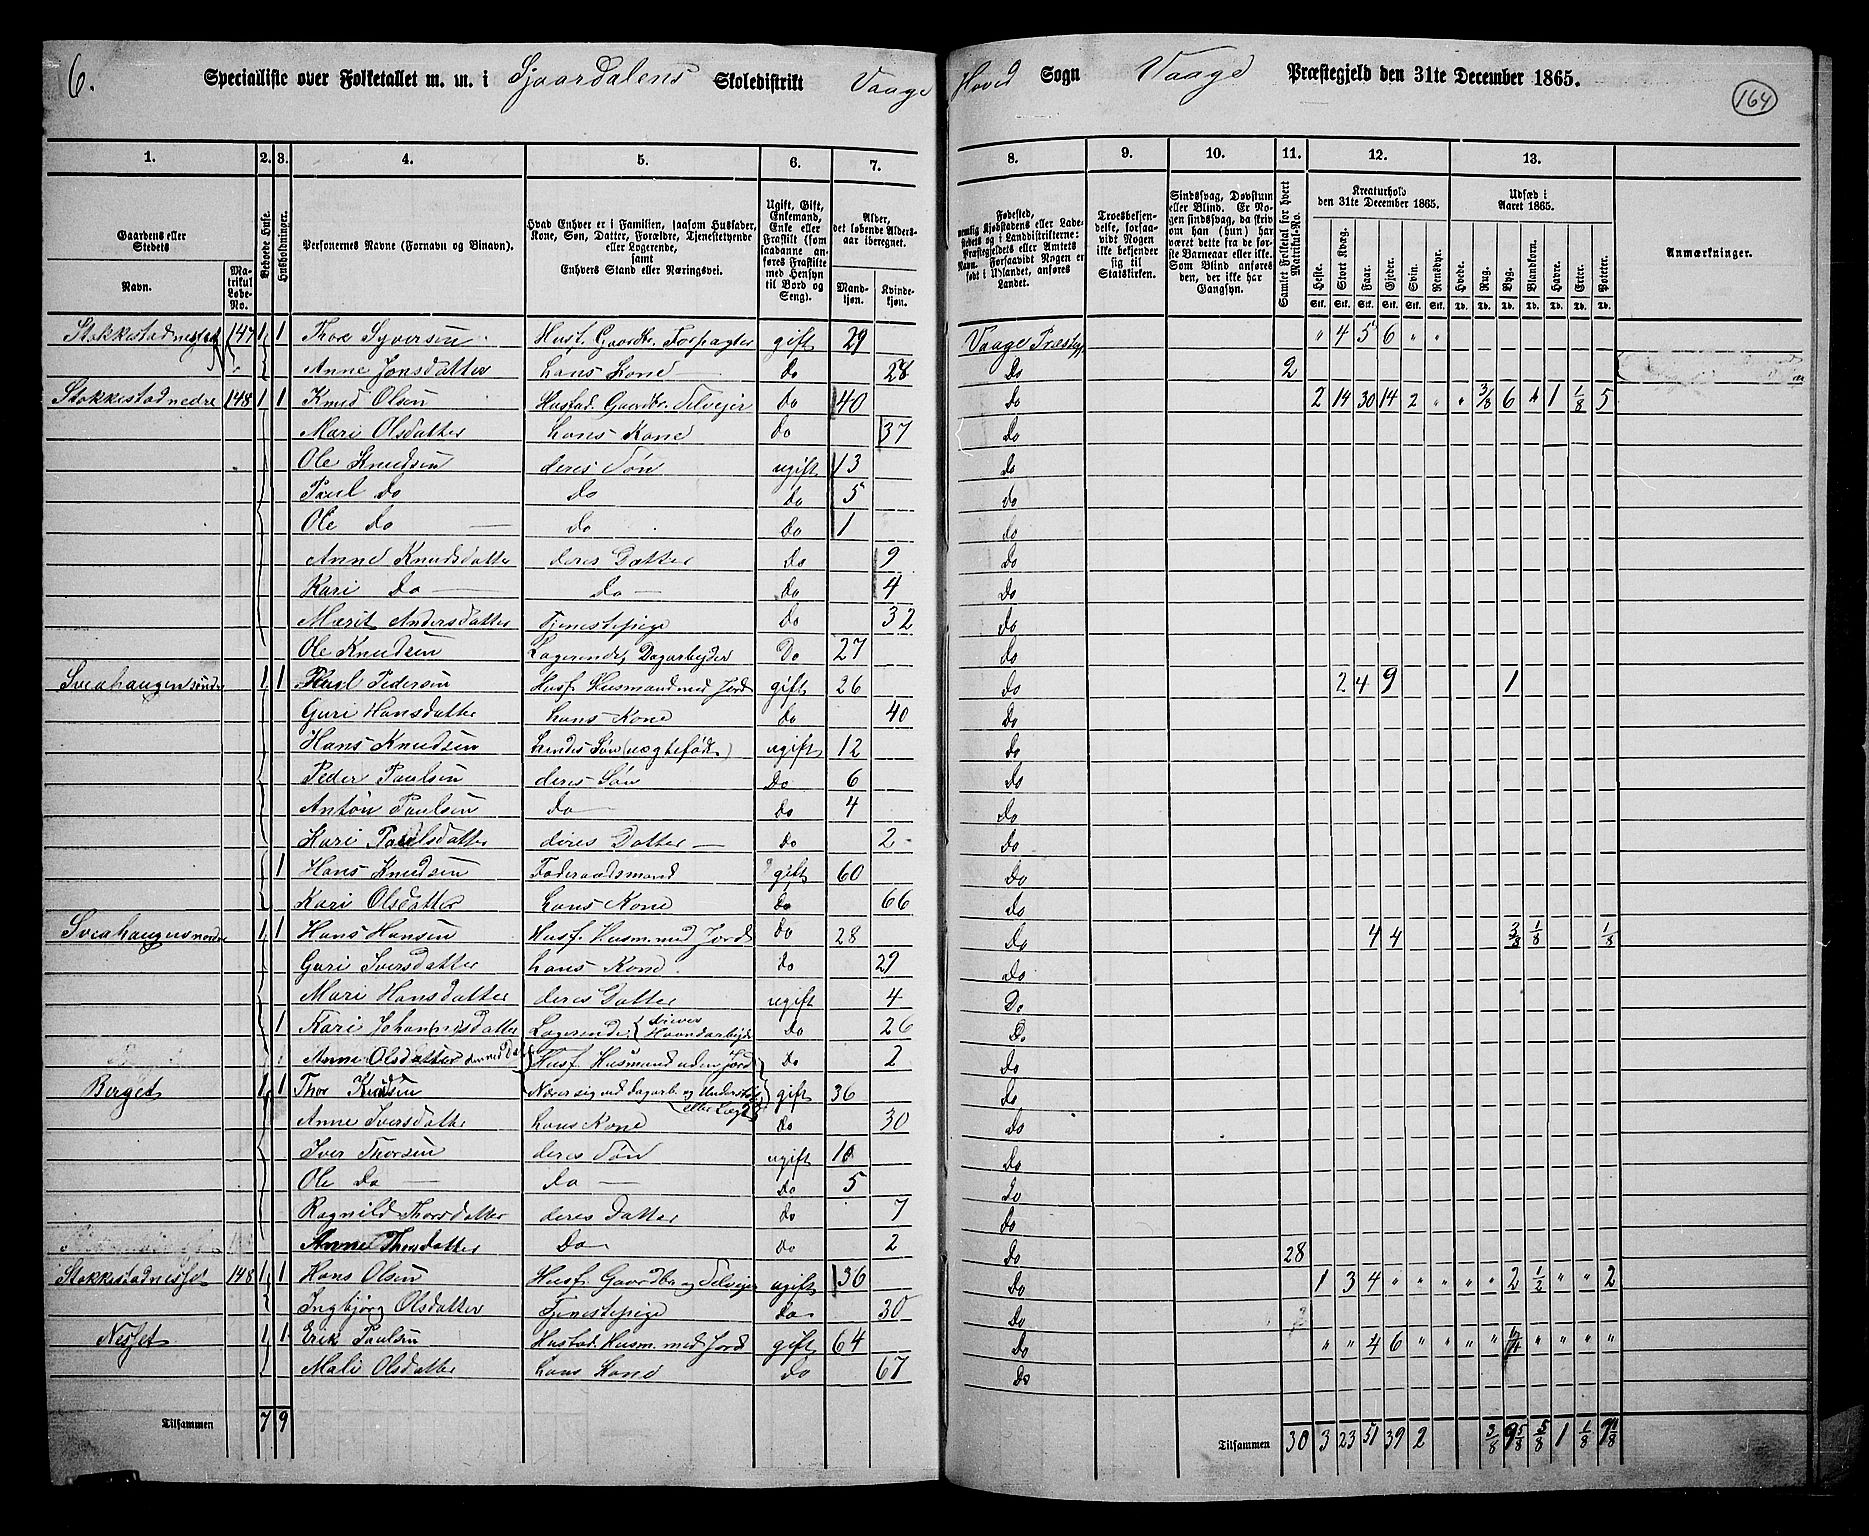 6. Specialliste over Folketallet m. m. i Sjaardalens Skoledistrikt Vaage Hoved Sogn Vaage Præstegjeld den 31te December 1865. 164
1. 2. 3. 4. 5. 6. 7. 8. 9. 10. 11. 12. 13.
Gaardens eller Stedets Navn. Matrikul Løbe-No.
Beboede Huse.
Husholdninger.
Personernes Navne (Fornavn og Binavn).
Hvad Enhver er i Familien, saasom Husfader, Kone, Søn, Datter, Forældre, Tjenestetyende eller Logerende, samt Enhvers Stand eller Næringsvei.
Ugift, Gift, Enkemand, Enke eller Fraskilt (som saadanne anføres Fraskilte med Hensyn til Bord og Seng).
Alder, det løbende Aldersaar iberegnet. Mandkjøn. Kvindekjøn.
Fødested, nemlig Kjøbstadens eller Ladestedets og i Landdistrikterne: Præstegjeldets eller Amtets Navn. Forsaavidt Nogen er født i Udlandet, anføres Landet.
Troesbekjendelse, forsaavidt Nogen ikke bekjender sig til Statskirken.
Sindssvag, Døvstum eller Blind. Er Nogen sindssvag, da skrives om han (hun) har været dette fra de første Barneaar eller ikke. Som Blind anføres den, der ikke har Gangsyn.
Samlet Folketal for hvert Matrikul-No.
Kreaturhold den 31te December 1865. Heste. Stort Kvæg. Faar. Gjeder. Svin. Rensdyr.
Udsæd i Aaret 1865. Hvede. Rug. Byg. Blandkorn. Havre. Erter. Poteter.
Anmærkninger.
Stk. Stk. Stk. Stk. Stk. Stk. Td. Td. Td. Td. Td. Td. Td.
147 1 1 Thor Syversen Husf. Gaardbr. Forpagter gift 29 Vaage Præstegj. " 4 5 6 " "
Anne Jonsdatter hans Kone do 28 Do 2
Stokkestadnedre 148 1 1 Knud Olsen Husfad. Gaardbr. Selveier do 40 Do 2 14 30 14 2 " " 3/8 6 " 1 1/8 5
Mari Olsdatter hans Kone do 37 Do
Ole Knudsen deres Søn ugift 13 Do
Paul do do do 5 do
Ole do do do 1 do
Anne Knudsdatter deres Datter do 9 Do
Kari do do do 4 Do
Marit Andersdatter Tjenestepige do 32 Do
Ole Knudsen Logerende, Dagarbejder Do 27 do
Sveahaugen søndre 1 1 Paul Pedersen Husf. Husmand med Jord gift 26 Do 2 4 9 1
Guri Hansdatter hans Kone do 40 Do
Hans Knudsen hendes Søn (uægtefødt) ugift 12 Do
Peder Paulsen deres Søn Do 6 Do
Anton Paulsen do do 4 Do
Kari Paulsdatter deres Datter do 2 Do
1 Hans Knudsen Føderaadsmand gift 60 Do
Kari Olsdatter hans Kone do 66 Do
Sveahaugen nordre 1 1 Hans Hansen Husf. Husm. med Jord do 28 Do 4 4 3/8 1/8 1/8
Guri Iversdatter hans Kone do 29 Do
Mari Hansdatter deres Datter ugift 4 Do
1 Kari Johannesdatter Logerende, driver Haandarbejde do 26 Do
Anne Olsdatter do 2 Do
Berget 1 1 Thor Knudsen Husf. Husmand uden Jord Nærer sig ved Dagarb. og gift 36 Do
Anne Iversdatter hans Kone do 30 Do
Iver Thorsen deres Søn ugift 10 Do
Ole do do do 5 Do
Ragnild Thorsdatter deres Datter do 7 Do
Anne Thorsdatter do do 2 Do 28
148 1 1 Hans Olsen Husf. Gaardbr. og Selveier ugift 36 Do 1 3 4 " " " " " 2 1/2 " " 2
Ingbjørg Olsdatter Tjenestepige do 30 Do
Nesset 1 1 Erik Paulsen Husfad. Husm. med Jord gift 64 Do " " 4 6 " " " " " " " "
Mali Olsdatter hans Kone do 67 Do
Tilsammen 7 9 Tilsammen 30 3 23 51 39 2 3/8 9 5/8 5/8 1 1/8